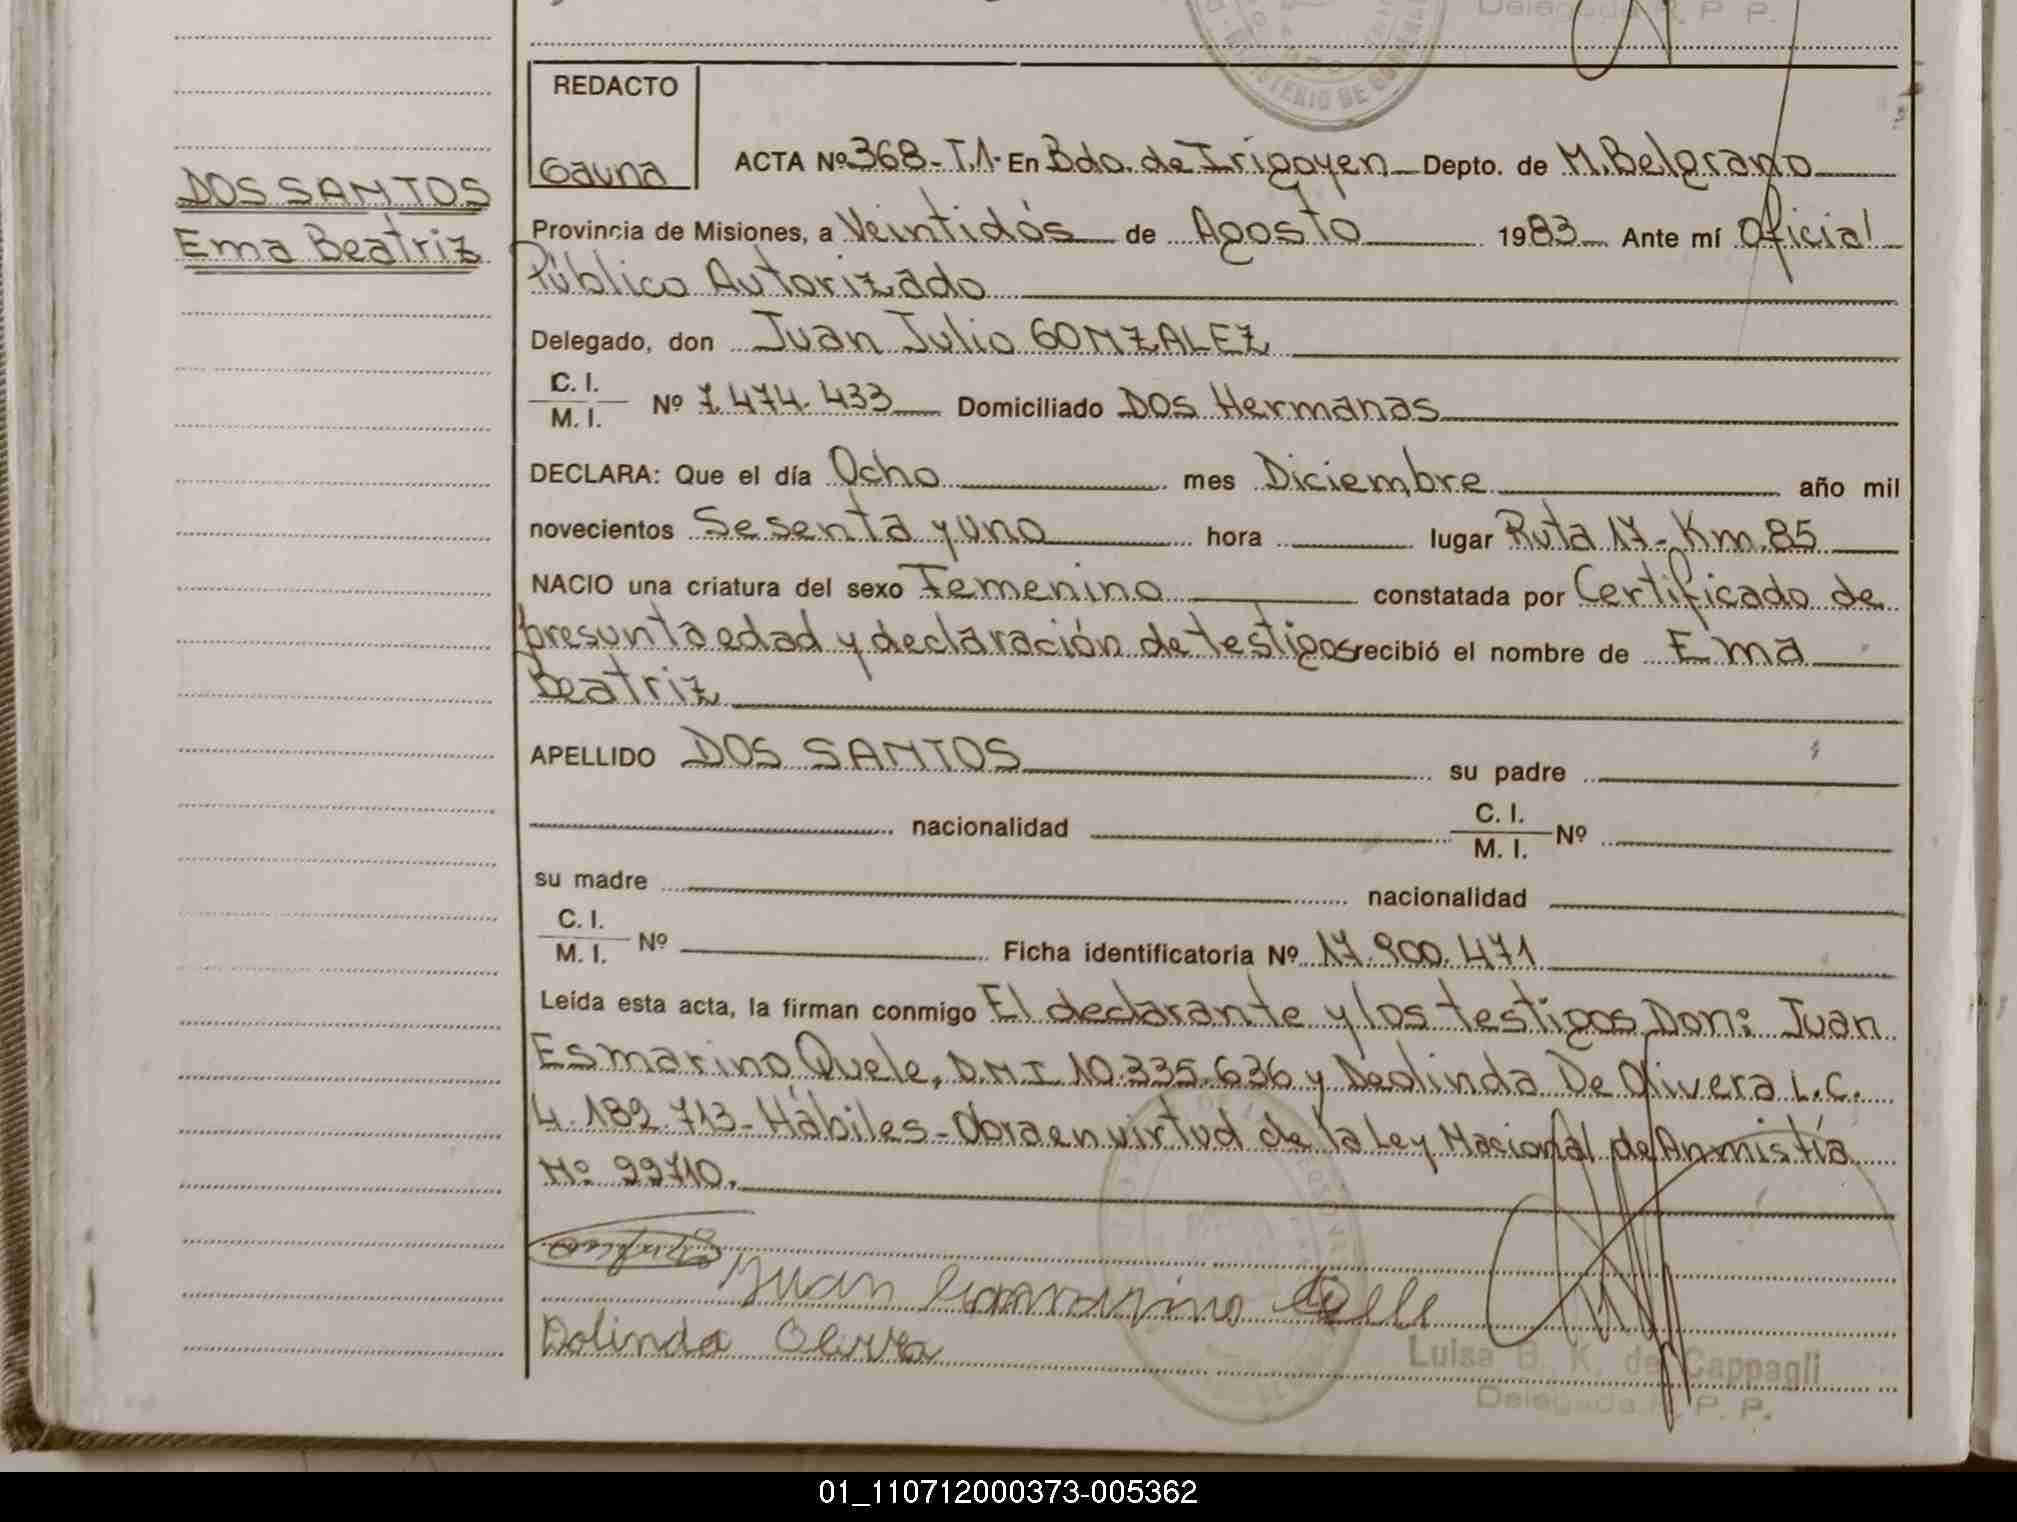 Delegada R. P. P.
MINISTERIO DE
REDACTO
Gauna
ACTA Nº 368-T.1. En Bdo. de Irigoyen Depto. de M. Belgrano
DOS SANTOS
Ema Beatriz
Provincia de Misiones, a Veintidós de Agosto 1983 Ante mí Oficial
Público Autorizado
Delegado, don Juan Julio GONZALEZ
C. I.
M. I. Nº 7.474.433 Domiciliado Dos Hermanas
DECLARA: Que el día Ocho mes Diciembre año mil
novecientos Sesenta y uno hora lugar Ruta 17-Km.85
NACIO una criatura del sexo Femenino constatada por Certificado de
presunta edad y declaración de testigos recibió el nombre de Ema
Beatriz
APELLIDO DOS SANTOS su padre
nacionalidad C. I. M. I. Nº
su madre nacionalidad
C. I.
M. I. Nº Ficha identificatoria Nº 17.900.471
Leída esta acta, la firman conmigo El declarante y los testigos Don: Juan
Esmarino Quele, DNI 10.335.636 y Deolinda De Olivera L.C.
4.182.713-Hábiles-Obra en virtud de la Ley Nacional de Anmistía
Nº 22710.
Juan
Dolinda
Luisa B. K. de Cappagli
Delegada R. P. P.
01_110712000373-005362